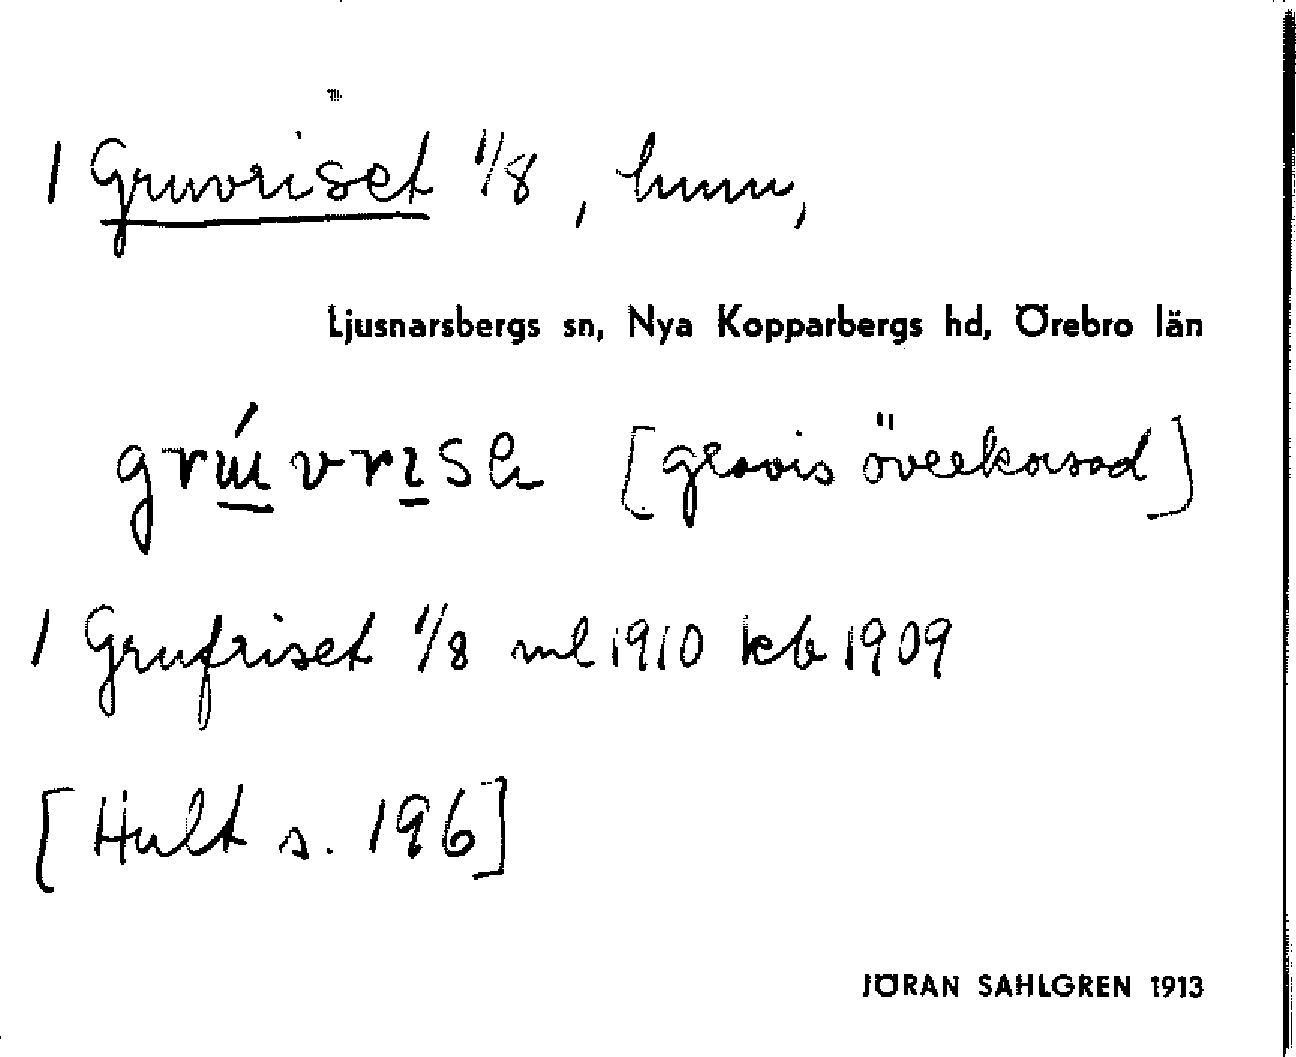 1 Gruvriset 1/8, hmn,
Ljusnarsbergs sn, Nya Kopparbergs hd, Örebro län
[gravis överkorsad]
1 Grufriset 1/8 ml 1910 kb 1909
[Hult s. 196]
JÖRAN SAHLGREN 1913